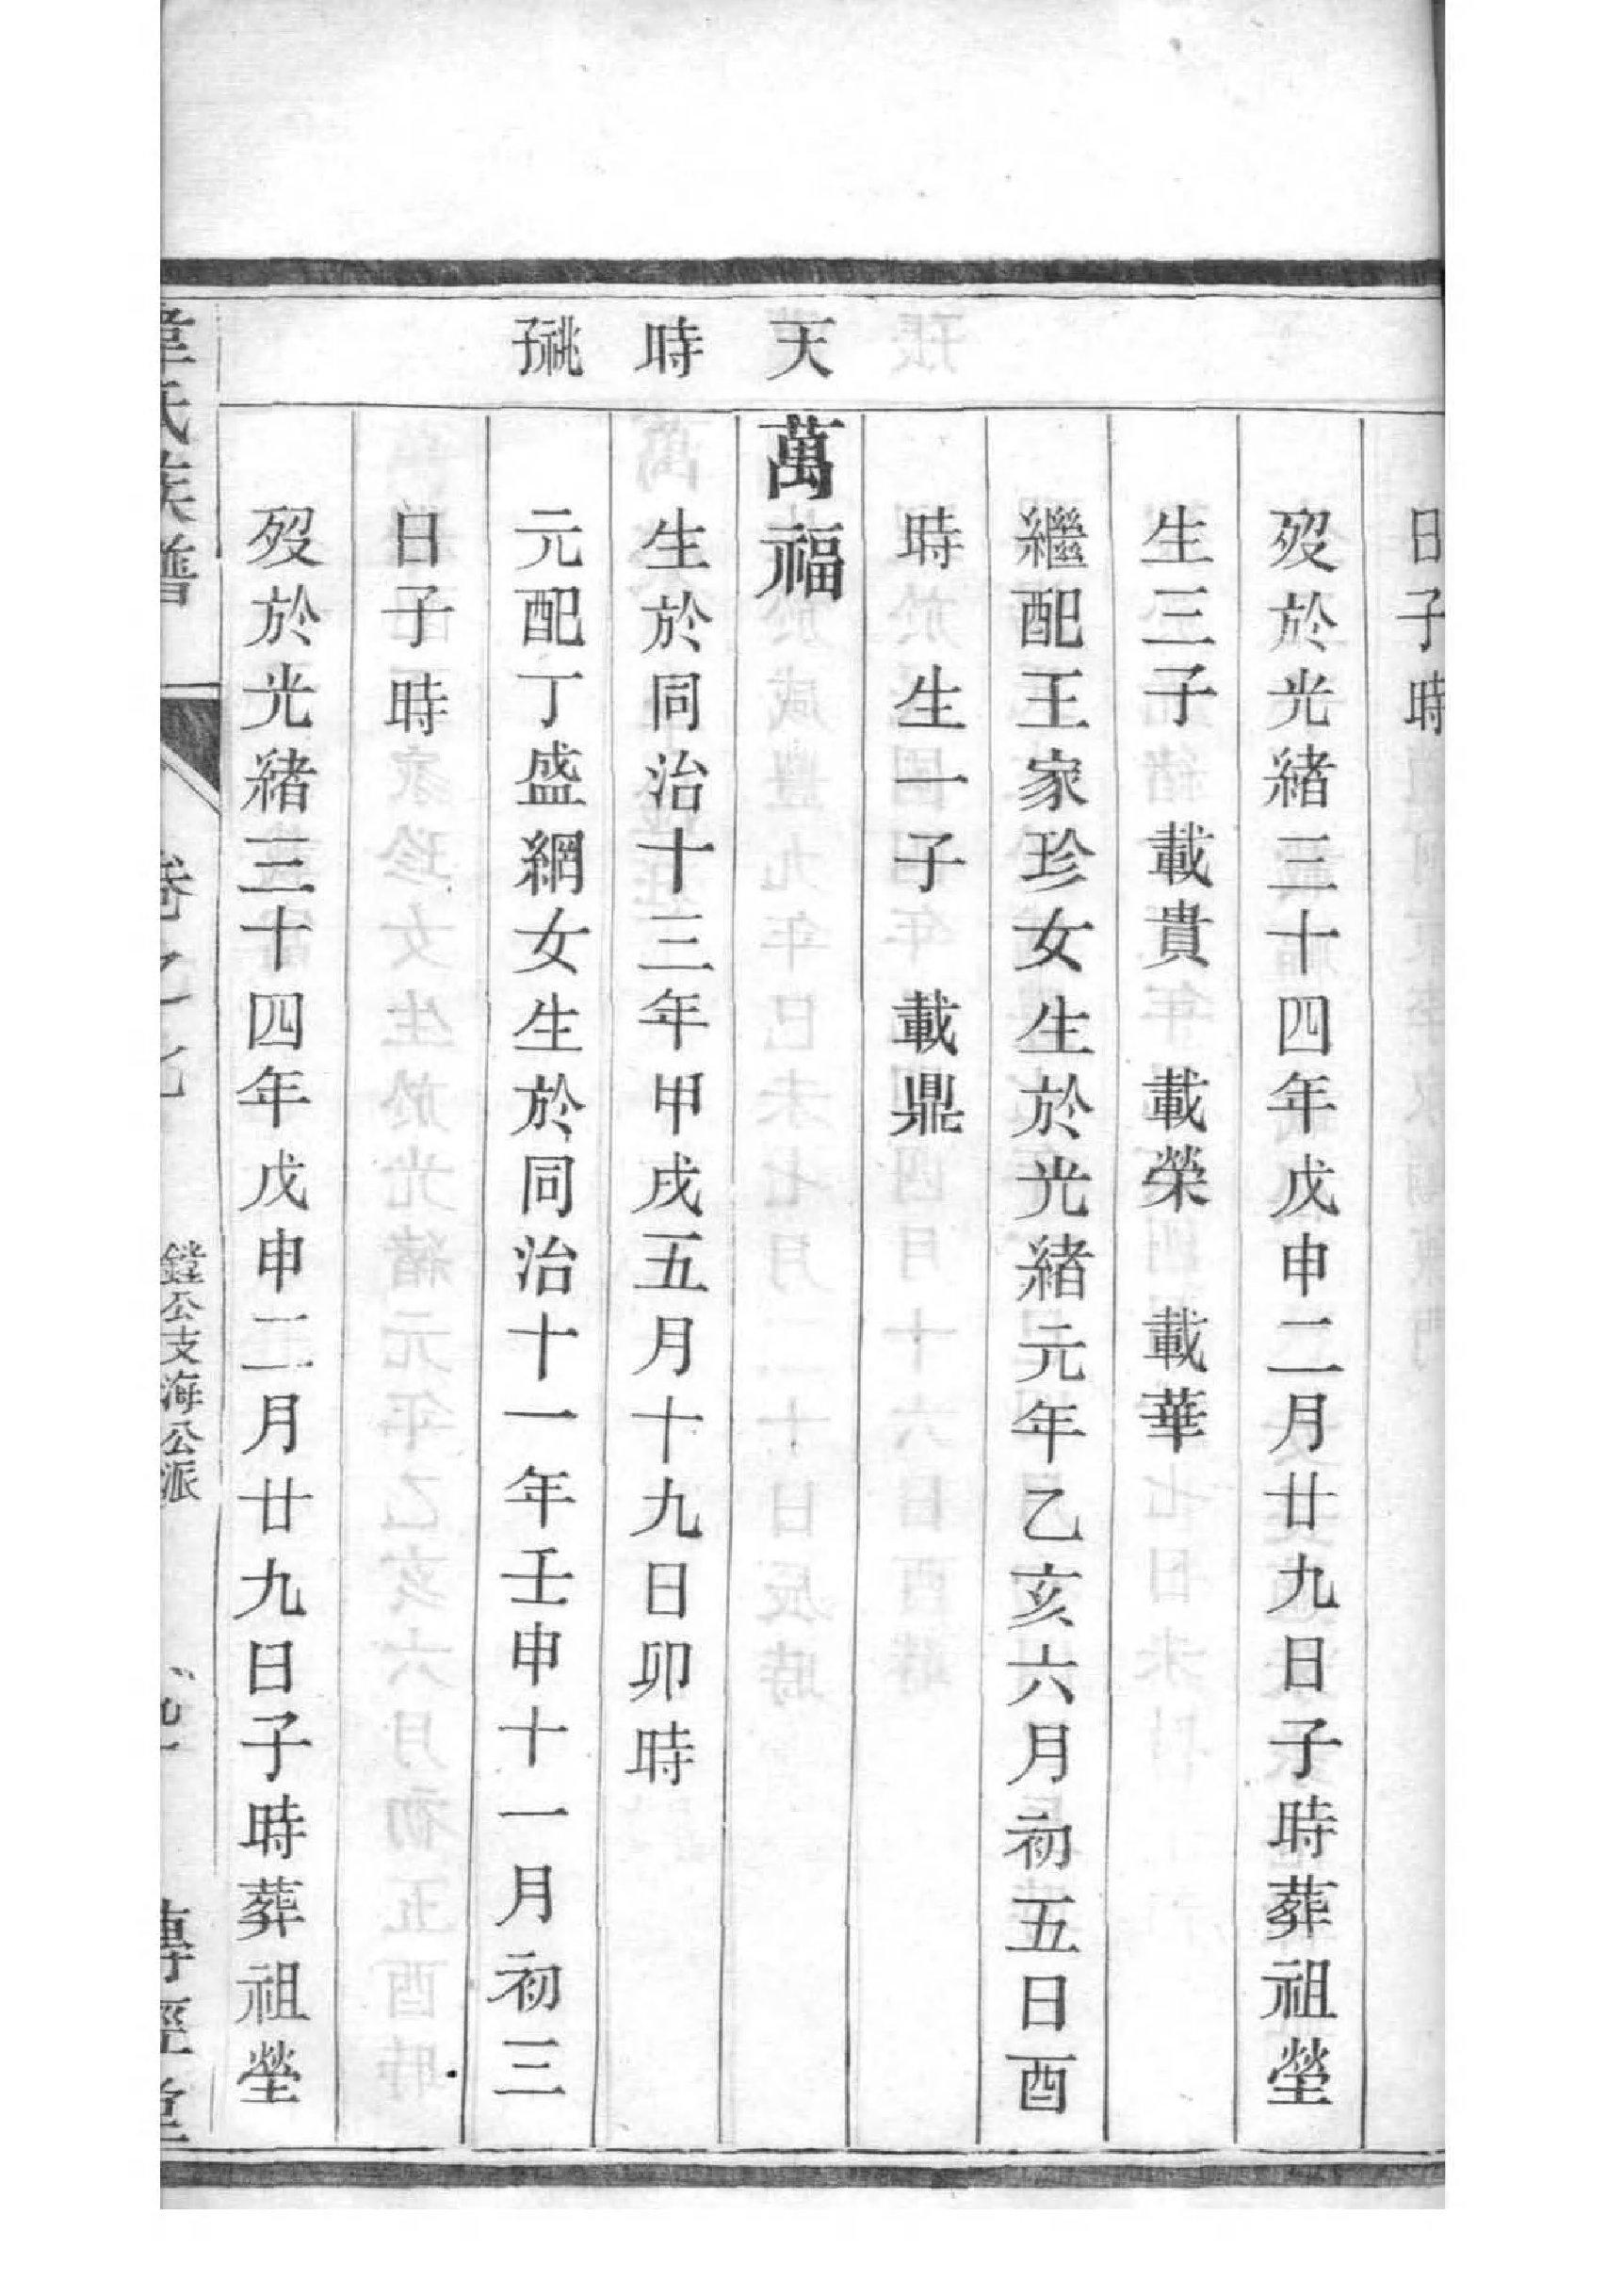 日子時
歿於光緒三十四年戊申二月廿九日子時葬祖塋
生三子 載貴 載榮 載華
繼配王家珍女生於光緒元年乙亥六月初五日酉
時 生一子 載鼎
天 萬福
時 生於同治十三年甲戌五月十九日卯時
祧子 元配丁盛網女生於同治十一年壬申十一月初三
日子時
歿於光緒三十四年戊申二月廿九日子時葬祖塋
氏族譜 卷之 鏜公支海公派 傳經堂